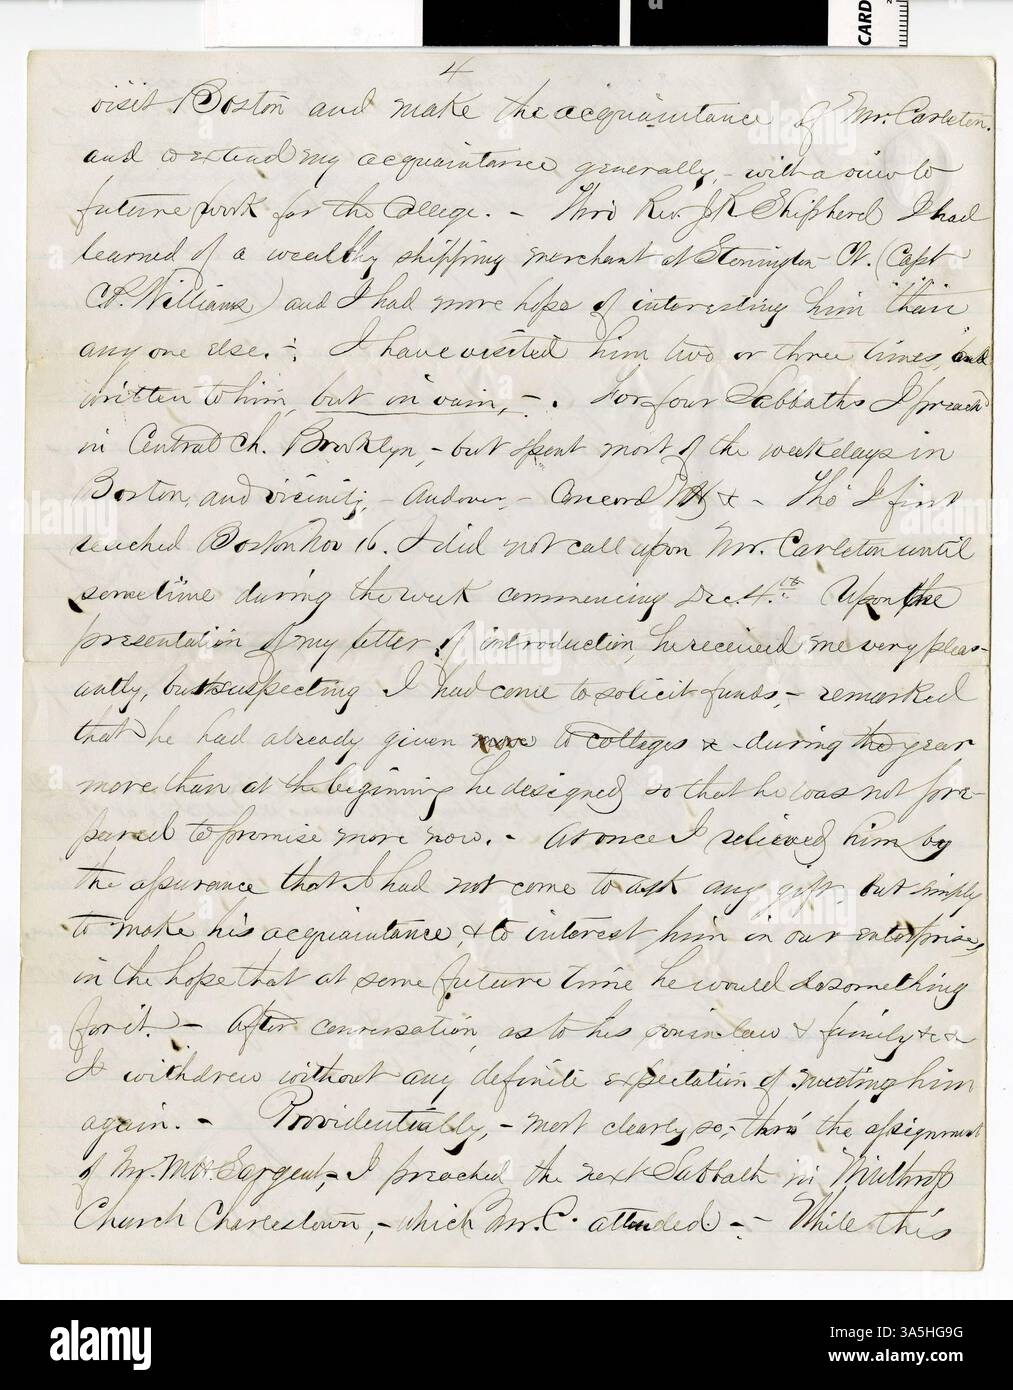 CARD
4
visit Boston and make the acquaintance of Mr. Carleton.
and to extend my acquaintance generally, - with a view to
future work for the College. - Thro' Rev. J R Shipherd I had
learned of a wealthy shipping merchant at Stonington Ct. (Capt
C P. Williams) and I had more hope of interesting him than
any one else. -. I have visited him two or three times, and
written to him, but in vain, -. For four Sabbaths I preach
in Central Ch. Brooklyn, - but spent most of the weekdays in
Boston, and vicinity, - Andover, - Concord NH & - Tho' I first
reached Boston Nov 16. I did not call upon Mr. Carleton until
sometime during the week commencing Dec. 4th. Upon the
presentation of my letter of introduction, he received me very pleas-
antly, but suspecting I had come to solicit funds, - remarked
that he had already given more to colleges & - during the year
more than at the beginning he designed, so that he was not pre-
pared to promise more now. - At once I relieved him by
the assurance that I had not come to ask any gift, but simply
to make his acquaintance, & to interest him in our enterprise,
in the hope that at some future time he would do something
for it. - After conversation, as to his son in law & family & &
I withdrew without any definite expectation of meeting him
again. - Providentially, - most clearly so, - thro' the assignment
of Mr. M H. Sargent, - I preached the next Sabbath in Winthrop
Church Charlestown, - which Mr. C. attended. - - While this
alamy
Image ID: 3A5HG9G
www.alamy.com